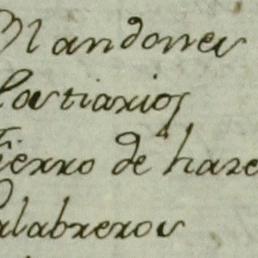 Blandones
Hostiarios
Fierro de haze
alabreros